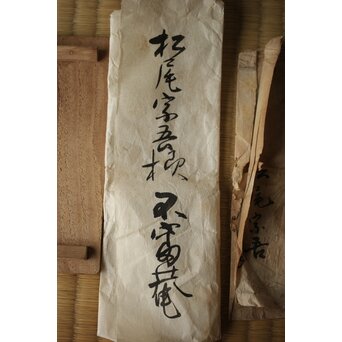 松尾宗吾様 不審菴
松尾宗吾